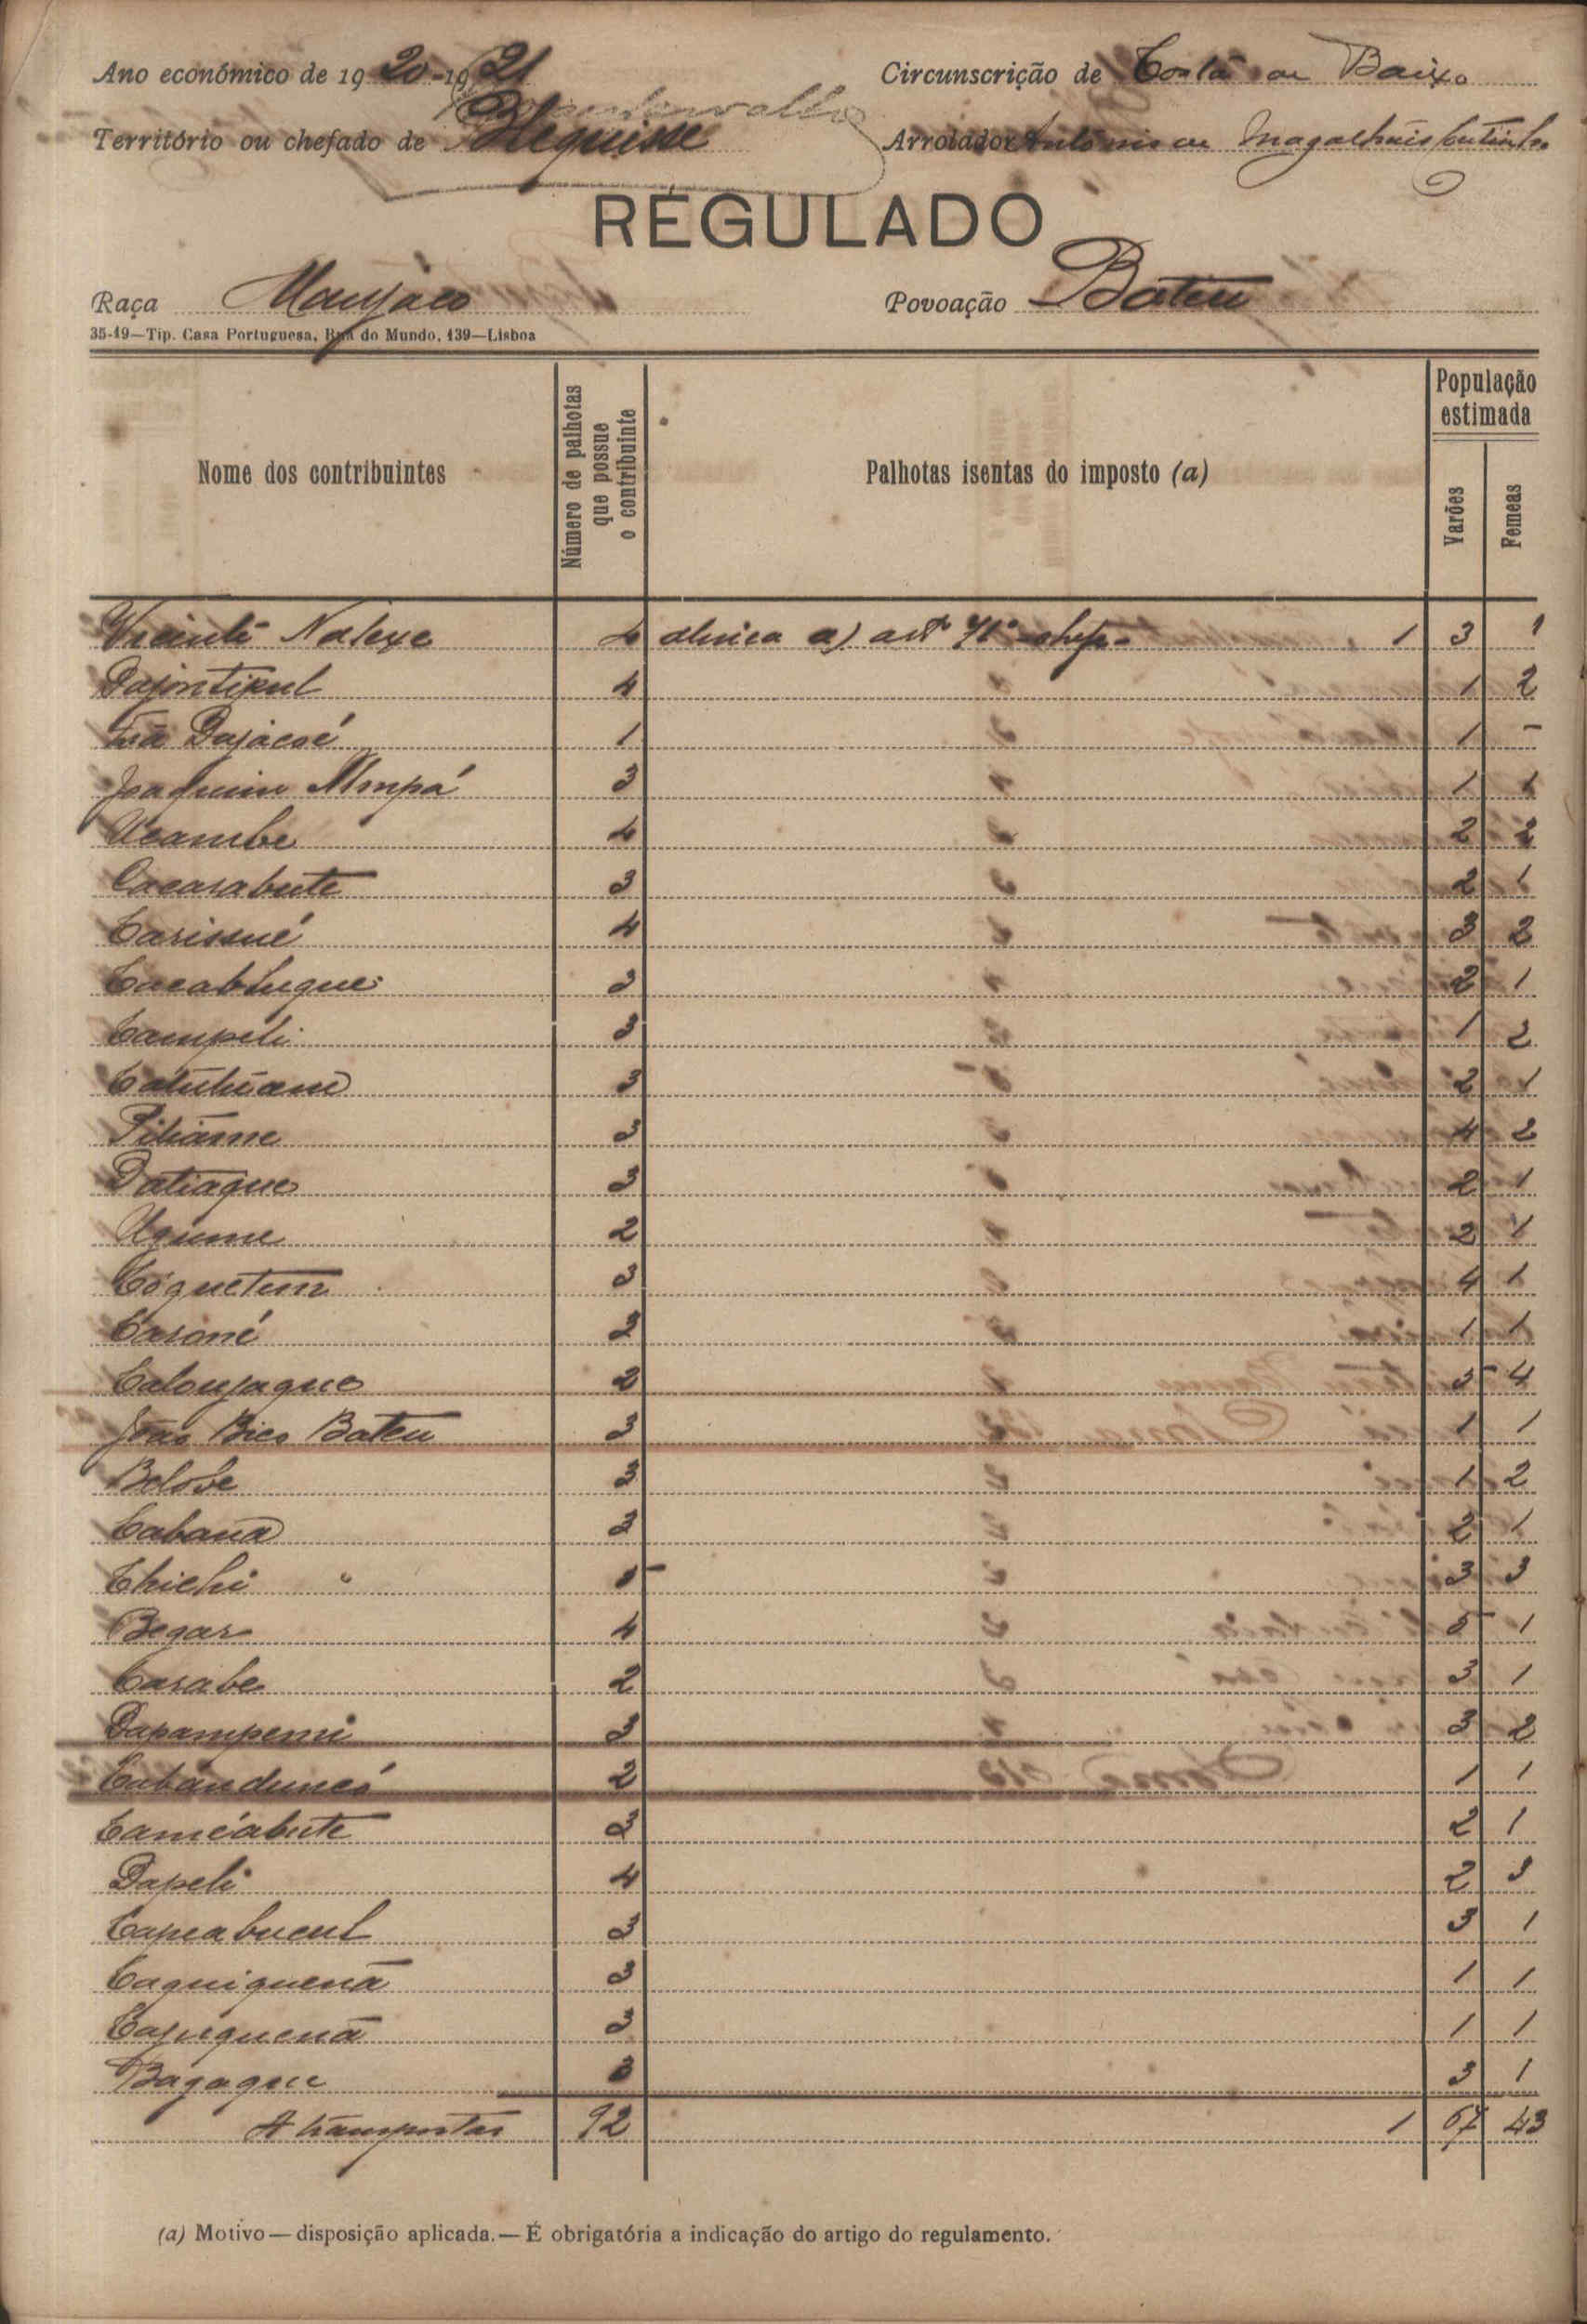 Ano económico de 1920-1921
Circunscrição de Costa de Baixo
Território ou chefado de
Arrolador António de Magalhães
REGULADO
Raça Manjaco
Povoação Bateu
35-19—Tip. Casa Portuguesa, Rua do Mundo, 139—Lisboa
Nome dos contribuintes
Número de palhotas que possue o contribuinte
Palhotas isentas do imposto (a)
População estimada
Varões
Femeas
Vicente Naleye 4 alinea a) artº 71º chefe 1 3 1
4 1 2
1 1 -
Joaquim 3 1 1
Ucambe 4 2 2
Cacarabute 3 2 1
Carissué 4 3 2
3 2 1
Campeli 3 1 2
3 2 1
3 4 2
Datiaque 3 2 1
2 2 1
Coquetum 3 4 1
Caroné 3 1 1
Caloujaque 2 5 4
João Bico Bateu 3 1 1
Belobe 3 1 2
Cabana 3 2 1
Chichi 5 3 3
Begar 4 5 1
Carabe 2 3 1
3 3 2
2 1 1
Caméabute 3 2 1
Dapeli 4 2 3
Capeabucul 3 3 1
Caquiquenã 3 1 1
3 1 1
Bagaque 3 3 1
A transportar 92 1 67 43
(a) Motivo—disposição aplicada.—É obrigatória a indicação do artigo do regulamento.